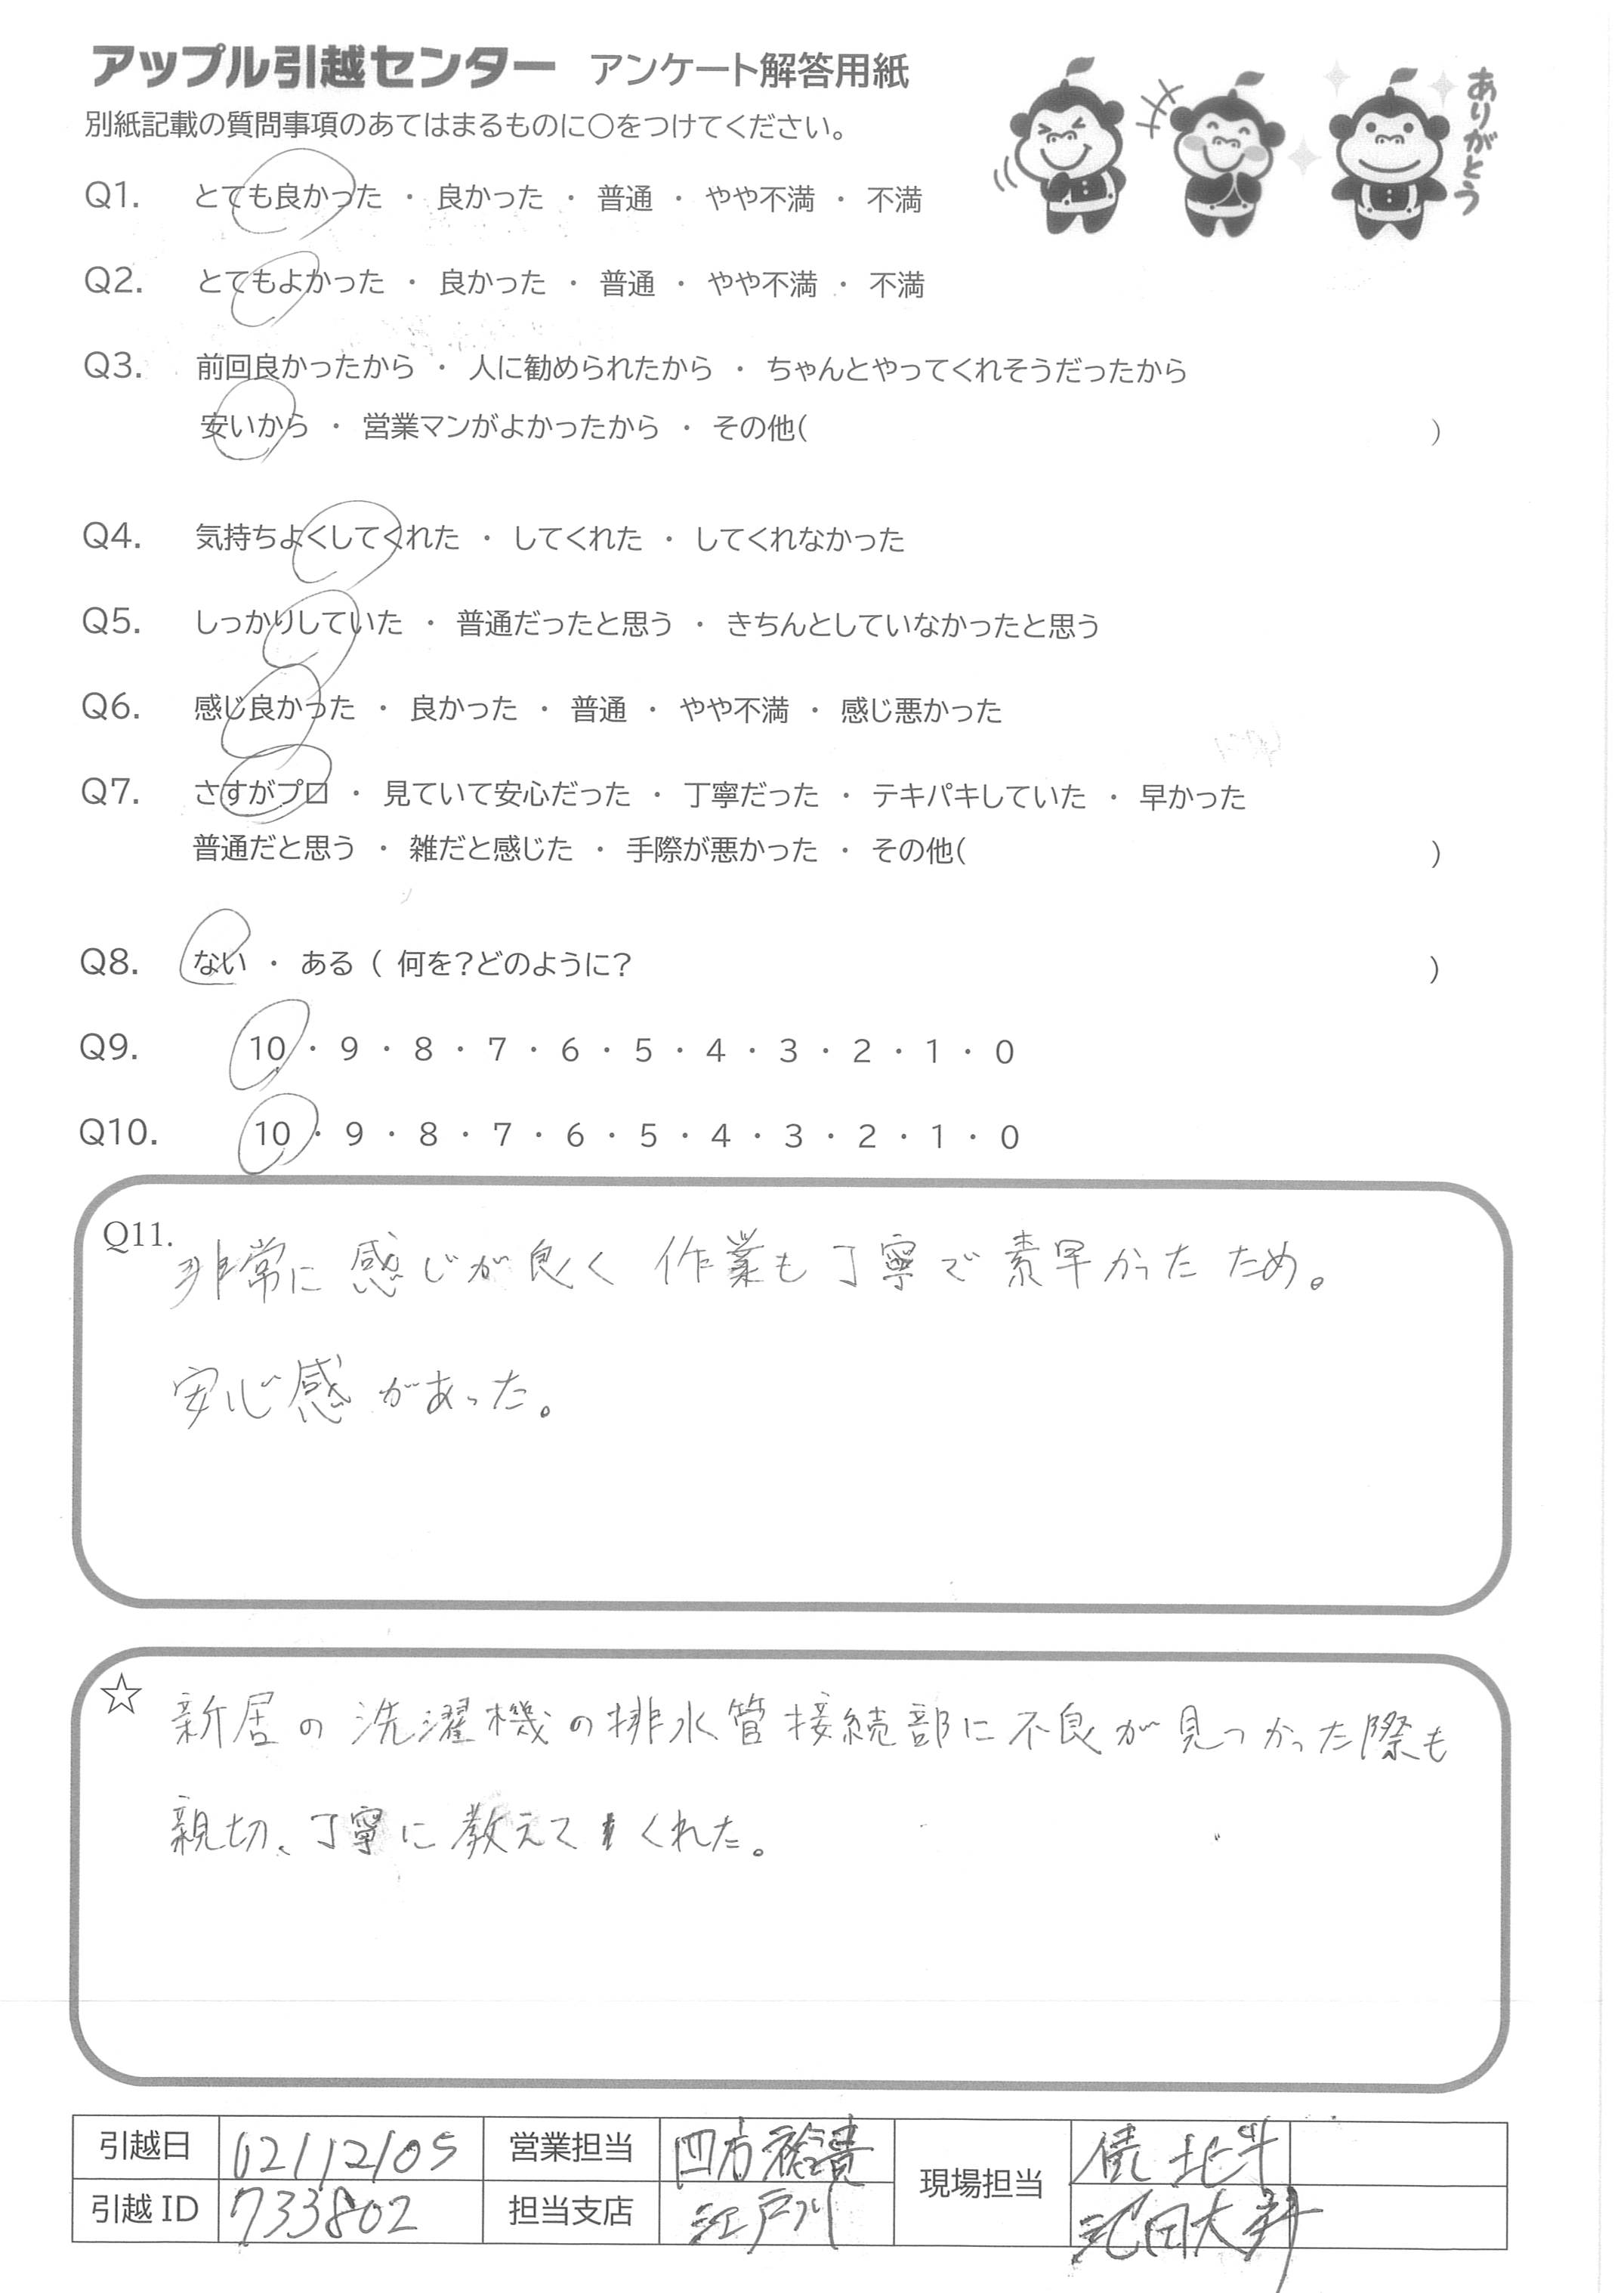 アップル引越センター アンケート解答用紙
別紙記載の質問事項のあてはまるものに○をつけてください。
ありがとう
Q1. とても良かった ・ 良かった ・ 普通 ・ やや不満 ・ 不満
Q2. とてもよかった ・ 良かった ・ 普通 ・ やや不満 ・ 不満
Q3. 前回良かったから ・ 人に勧められたから ・ ちゃんとやってくれそうだったから
安いから ・ 営業マンがよかったから ・ その他( )
Q4. 気持ちよくしてくれた ・ してくれた ・ してくれなかった
Q5. しっかりしていた ・ 普通だったと思う ・ きちんとしていなかったと思う
Q6. 感じ良かった ・ 良かった ・ 普通 ・ やや不満 ・ 感じ悪かった
Q7. さすがプロ ・ 見ていて安心だった ・ 丁寧だった ・ テキパキしていた ・ 早かった
普通だと思う ・ 雑だと感じた ・ 手際が悪かった ・ その他( )
Q8. ない ・ ある ( 何を?どのように? )
Q9. 10 ・ 9 ・ 8 ・ 7 ・ 6 ・ 5 ・ 4 ・ 3 ・ 2 ・ 1 ・ 0
Q10. 10 ・ 9 ・ 8 ・ 7 ・ 6 ・ 5 ・ 4 ・ 3 ・ 2 ・ 1 ・ 0
Q11. 非常に感じが良く 作業も丁寧で素早かったため。
安心感があった。
☆ 新居の洗濯機の排水管接続部に不良が見つかった際も
親切、丁寧に教えてくれた。
引越日 02/12/05 営業担当 四方 現場担当 北斗
引越ID 733802 担当支店 江戸川 池田大